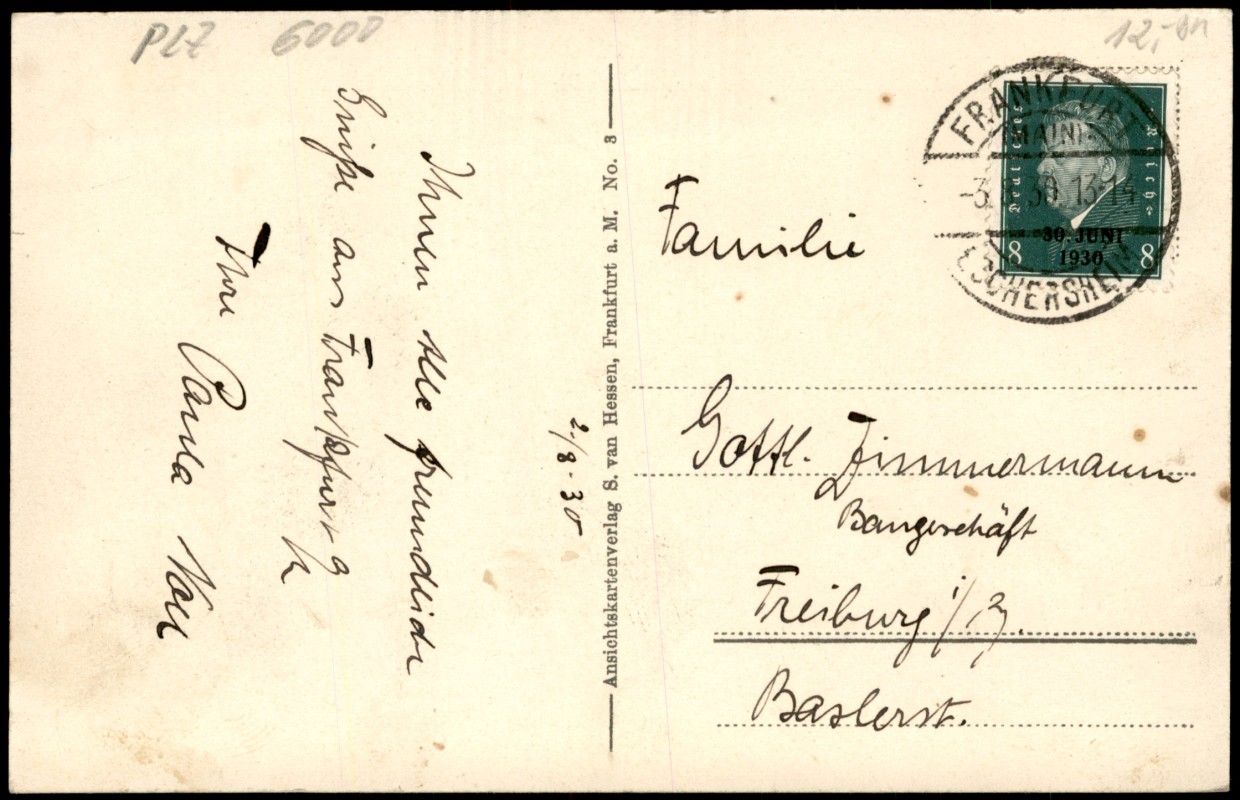 PLZ 6000
12,-
2./8.30
Ihnen Alle freundliche
Grüße aus Frankfurt a
Ihre Paula
Ansichtskartenverlag S. van Hessen, Frankfurt a. M. No. 8
FRANKFURT
(MAIN)
30.13-14
ESCHERSHEIM
Deutsches Reich
30. JUNI
1930
8 8
Familie
Gottl. Zimmermann
Baugeschäft
Freiburg i/B.
Baslerst.